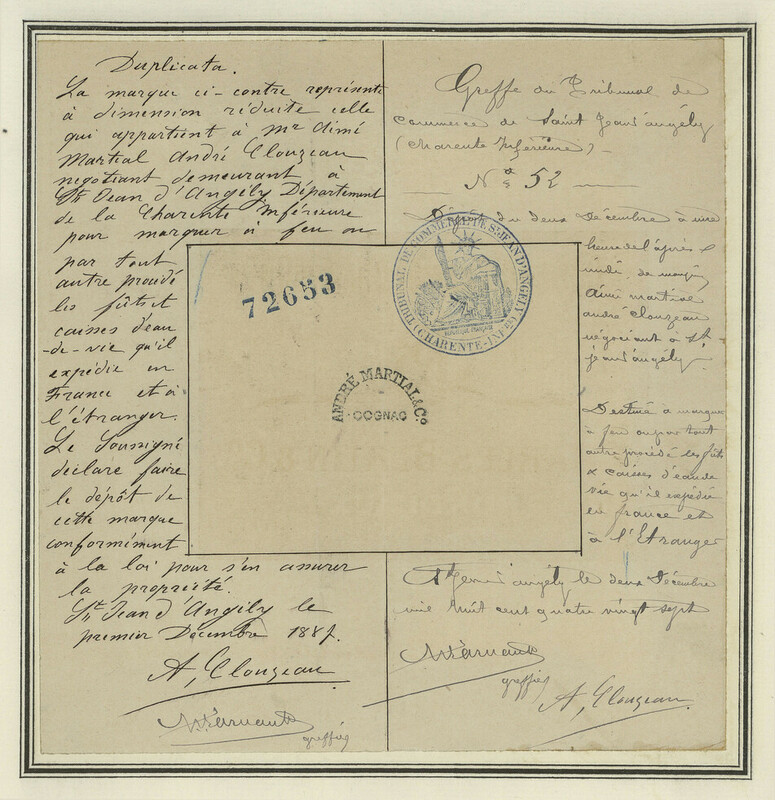 Duplicata.
La marque ci-contre représente
à dimension réduite celle
qui appartient à Mr Aimé
Martial André Clouzeau
négotiant demeurant à
St Jean d'Angély Département
de la Charente Inférieure
pour marquer à feu ou
par tout
autre procédé
les fûts et
caisses d'eau
-de-vie qu'il
expédie en
France et à
l'étranger.
Le Soussigné
déclare faire
le dépôt de
cette marque
conformément
à la loi pour s'en assurer
la propriété.
St Jean d'Angély le
premier Décembre 1887.
A, Clouzeau
greffier
72653
TRIBUNAL DE COMMERCE DE ST JEAN D'ANGELY
(CHARENTE-INFRE)
ANDRÉ MARTIAL & Co
COGNAC
Greffe du Tribunal de
Commerce de Saint Jean d'angély
(Charente Inférieure) -
No 52
Dépôt du deux Décembre à une
heure de l'après
midi, de
Aimé martial
andré clouzeau
négociant à St
jean d'angély
Destiné à marquer
à feu ou par tout
autre procédé les fûts
& caisses d'eau de
vie qu'il expédie
en france et
à l'Etranger
St jean d'angély le deux Décembre
mil huit cent quatre vingt sept
greffier
A, Clouzeau